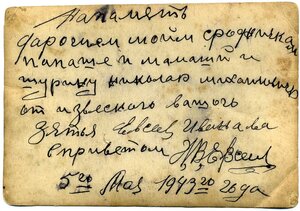 На память
дарогием моим сродничкам
папаше и мамаши и
шурину николаю михайлович
от извесного вашого
зятья Евсея Иванава
с приветом
5го Мая 1943го года